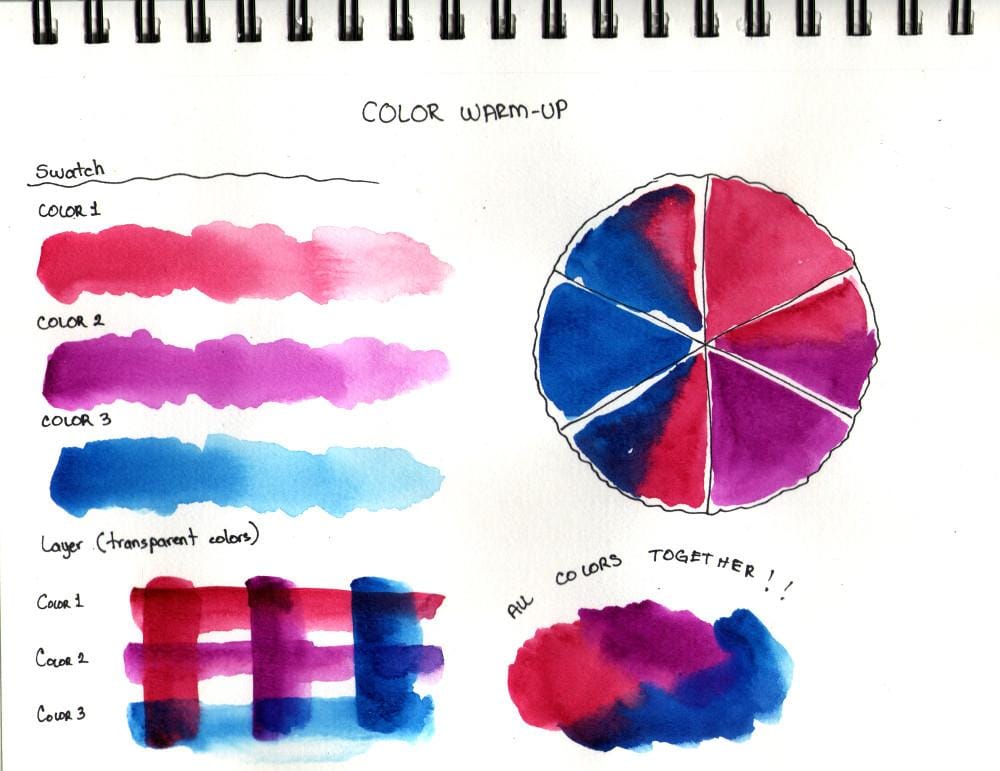 COLOR WARM-UP
Swatch
COLOR 1
COLOR 2
COLOR 3
Layer (transparent colors)
COLOR 1
COLOR 2
COLOR 3
ALL COLORS TOGETHER!!